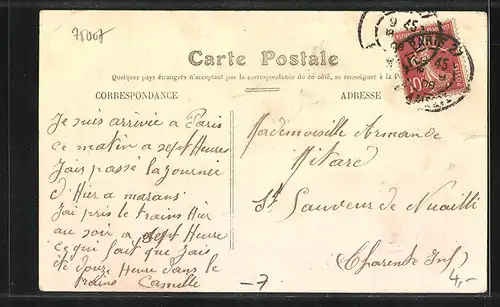 75007
Carte Postale
Quelques pays étrangers n'acceptant pas la correspondance de ce côté, se renseigner à la
CORRESPONDANCE
ADRESSE
Je suis arrivée a Paris
ce matin a sept Heures
Jais passé la journée
d'Hier a marans
Jai pris le trains Hier
au soir a sept Heure
ce qui fait que jais
été douze Heure dans le
trains Camille
Mademoiselle Armande
Mitard
St Sauveur de Nuaillé
Charente Inf)
7
4,-
9 45
PARIS
10